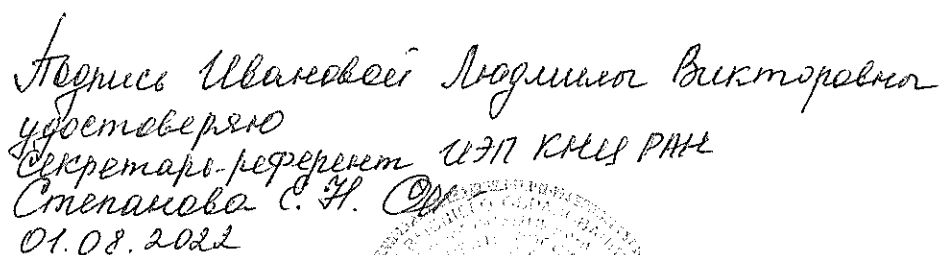 Подпись Ивановой Людмилы Викторовны
удостоверяю
Секретарь-референт ИЭП КНЦ РАН
Степанова Е. Н.
01.08.2022